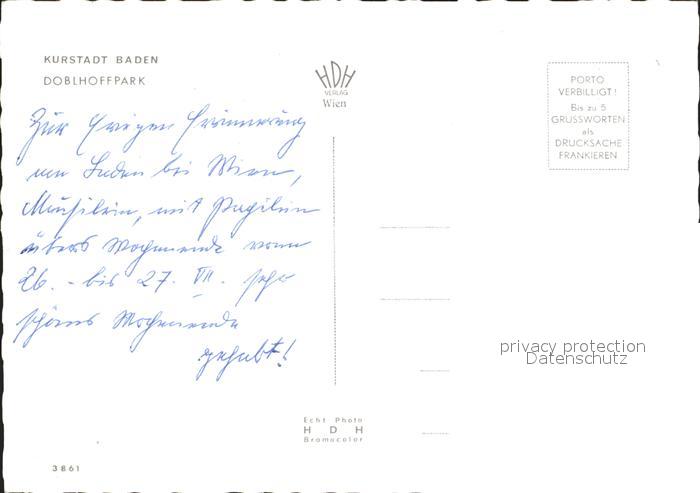 KURSTADT BADEN
DOBLHOFFPARK
HDH
VERLAG
Wien
PORTO
VERBILLIGT!
Bis zu 5
GRUSSWORTEN
als
DRUCKSACHE
FRANKIEREN
Zur Erinnerung
Baden bei Wien,
mit
übers Wochenende vom
26. - bis 27. VII. sehr
schönes Wochenende
gehabt!
privacy protection
Datenschutz
Echt Photo
H D H
Bromocolor
3861